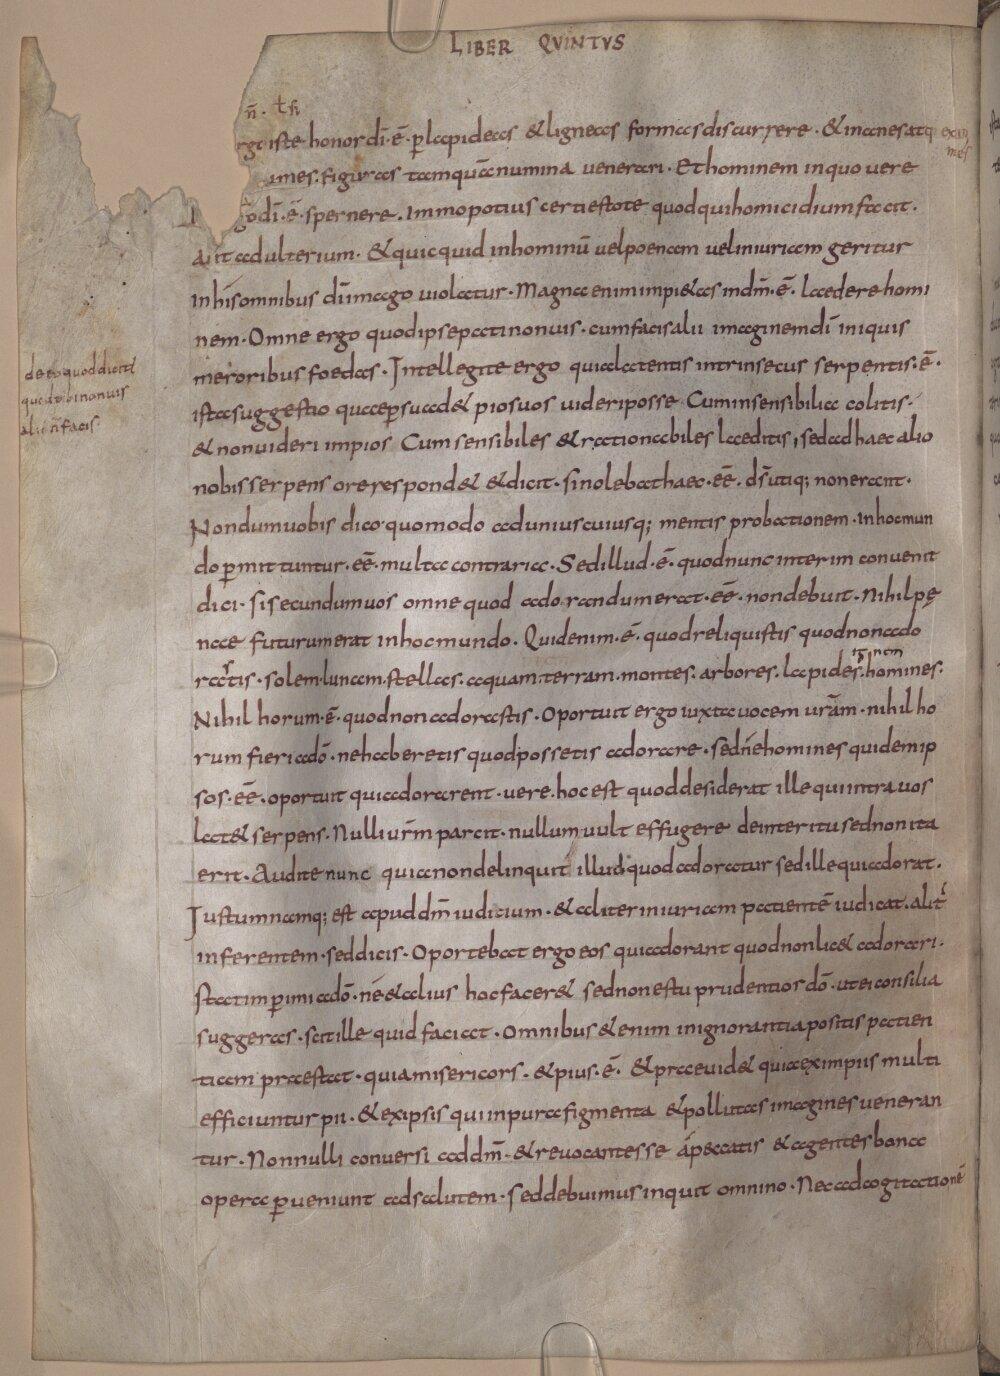 LIBER QVINTVS
n̄. th
rgo iste honor dī·ē· p̱ lapideas & ligneas formas discurrere· & inanes atq exani
mes
imes· figuras tamquā numina venerari· Et hominem in quo vere
godī·ē· spernere. Immo potius certi estote quod qui homicidium facit·
Aut adulterium· & quicquid in hominū vel poenam vel iniuriam geritur
In his omnibus dī imago violatur· Magna enim impi&as in dm̄·ē· laedere homi
nem· Omne ergo quod ipse pati non vis· cum facis alii imaginem dī iniquis
meroribus foedas· Intellegite ergo quia latentis intrinsecus serpentis·ē·
ista suggestio quae p̱suad& pios vos videri posse Cum insensibilia colitis·
& non videri impios Cum sensibiles & rationabiles laeditis, sed ad haec alio
nobis serpens ore respond& & dicit· si nolebat haec·eē· ds̄ utiq; non erant·
Nondum vobis dico quomodo ad unius cuiusq; mentis probationem· In hoc mun
do p̱mittuntur·eē· multa contraria· Sed illud·ē· quod nunc interim convenit
dici· si secundum vos omne quod adorandum erat·eē· non debuit· Nihil pę
nae futurum erat in hoc mundo. Quid enim·ē· quod reliquistis quod non ado
rastis· solem· lunam· stellas· aquam· terram· montes· arbores· lapides· homines·
Nihil horum·ē· quod non adorastis· Oportuit ergo iuxta vocem vrām· nihil ho
rum fieri a dō· ne haberetis quod possetis adorare· sed nē homines quidem ip
sos·eē· oportuit qui adorarent· vere· hoc est quod desiderat ille qui intra vos
lat& serpens· Nulli vrm̄ parcit· nullum vult effugere de interitu sed non ita
erit· Audite nunc quia non delinquit illud quod adoratur sed ille qui adorat·
Iustum namq; est apud dm̄ iudicium· & aliter iniuriam patientē iudicat· alit
inferentem· sed dicis· Oportebat ergo eos qui adorant quod non lic& adorari·
statim p̱imi a dō· ne & alius hoc facer& sed non es tu prudentior dō· ut ei consilia
suggeras· scit ille quid faciat· Omnibus & enim in ignorantia positis patien
tiam praestat· quia misericors· & pius·ē· & praevid& quia ex impiis multi
efficiuntur pii· & ex ipsis qui inpura figmenta & pollutas imagines veneran
tur· Nonnulli conversi ad dm̄· & revocantes se a peccatis & agentes bona
opera p̱veniunt ad salutem· sed debuimus inquit omnino· Nec ad cogitationē